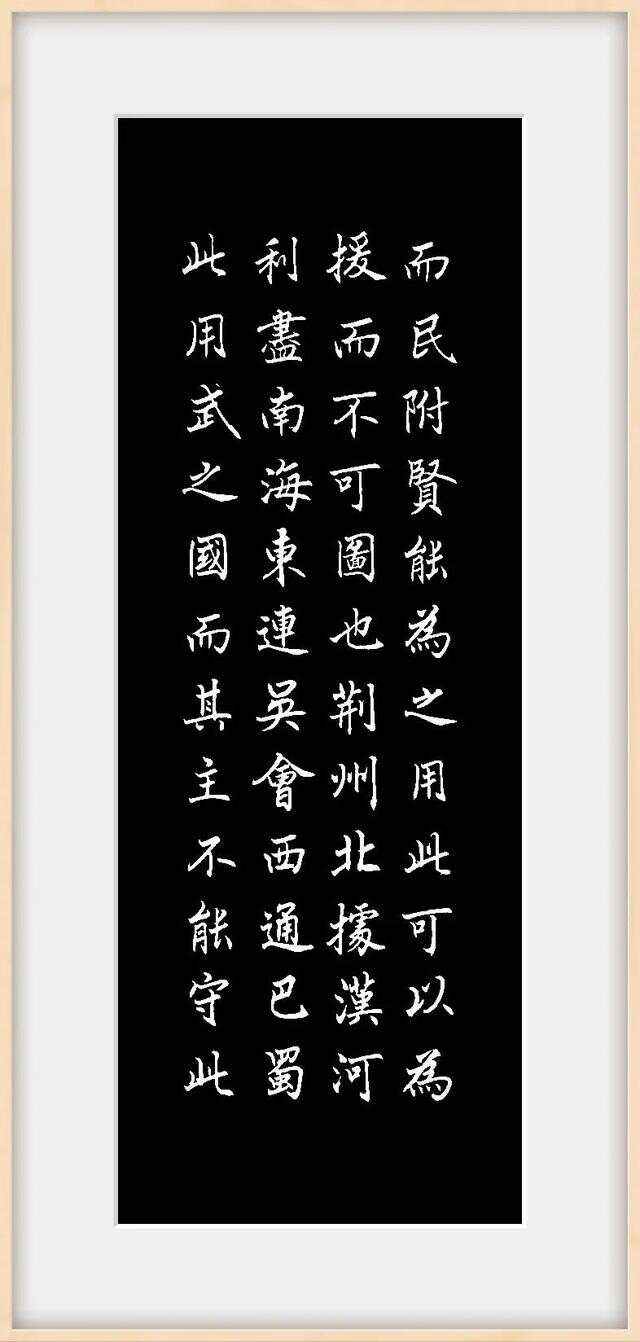 而民附賢能為之用此可以為
援而不可圖也荆州北據漢河
利盡南海東連吳會西通巴蜀
此用武之國而其主不能守此